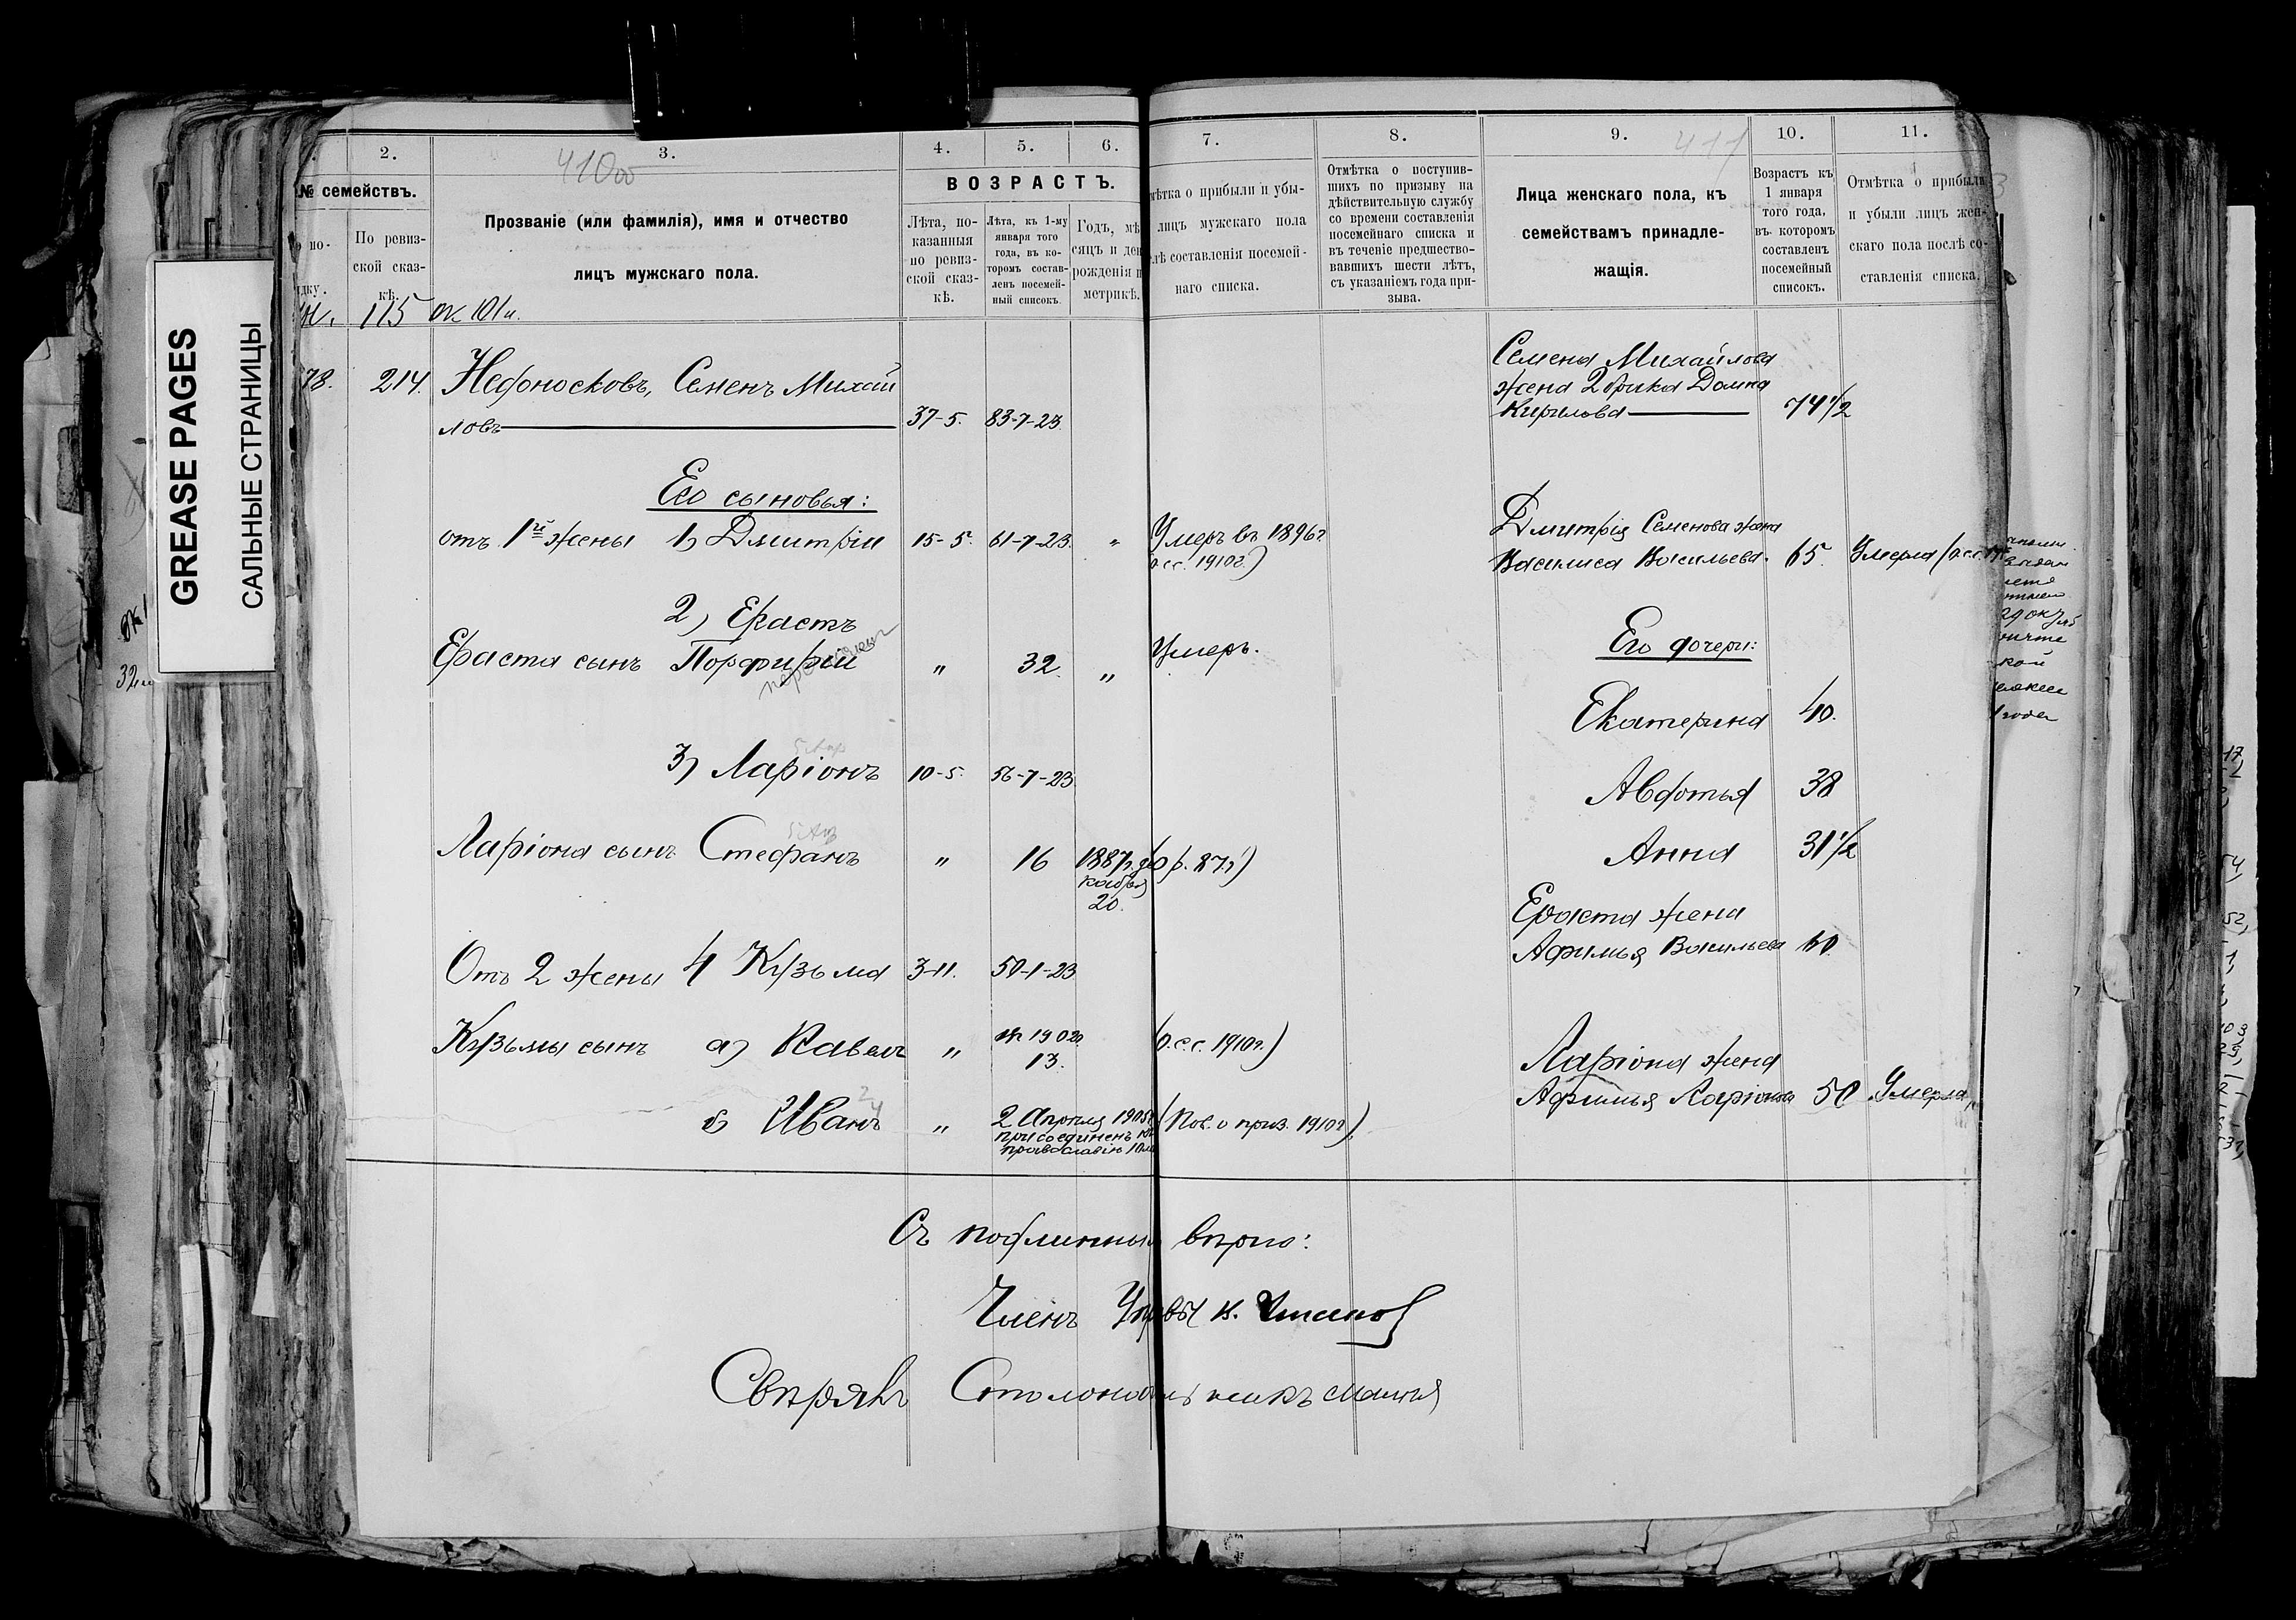 GREASE PAGES
САЛЬНЫЕ СТРАНИЦЫ
2.
3.
4.
5.
6.
7.
8.
9.
10.
11.
410об
411
№ семействъ.
По ревиз-
ской сказ-
кѣ.
Прозваніе (или фамилія), имя и отчество
лицъ мужскаго пола.
ВОЗРАСТЪ.
Лѣта, по-
казанныя
по ревиз-
ской сказ-
кѣ.
Лѣта, къ 1-му
января того
года, въ ко-
торомъ состав-
ленъ посемей-
ный списокъ.
Годъ, мѣ
сяцъ и ден
рожденія п
метрикѣ.
мѣтка о прибыли и убы-
лицъ мужскаго пола
лѣ составленія посемей-
наго списка.
Отмѣтка о поступив-
шихъ по призыву на
дѣйствительную службу
со времени составленія
посемейнаго списка и
въ теченіе предшество-
вавшихъ шести лѣтъ,
съ указаніемъ года при-
зыва.
Лица женскаго пола, къ
семействамъ принадле-
жащія.
Возрастъ къ
1 января
того года,
въ. которомъ
составленъ
посемейный
списокъ.
Отмѣтка о прибыли
и убыли лицъ жен-
скаго пола послѣ со-
ставленія списка.
115
78. 214. Нефоносковъ, Семенъ Михай
ловъ 37-5. 83-7-23
Семена Михайлова
жена 2 брака Домна
Кирилова 74 1/2
Его сыновья:
отъ 1й жены 1) Дмитрій 15-5. 61-7-23. " Умеръ въ 1896г
о.с.с. 1910г.)
Дмитрія Семенова жена
Василиса Васильева. 65. Умерла
2) Ерастъ
Ераста сынъ Порфирій " 32. " Умеръ.
Его дочери:
Екатерина 40.
3) Ларіонъ 10-5. 56-7-23
Авдотья 38
Ларіона сынъ Стефанъ " 16 1887г. де
кабря
20.
р. 87г)
Анна 31 1/2
Ераста жена
Афимья Васильева 60
Отъ 2 жены 4 Кузьма 3-11. 50-1-23
Кузьмы сынъ а) Павелъ " 1902
13.
(о.с.с. 1910г.)
Ларіона жена
Афимья Ларіонова 50 Умерла
б Иванъ " 2 Апрѣля 1905
присоединенъ къ
православію
(Пов. о приз. 1910г.)
Съ подлиннымъ вѣрно:
Членъ Управы
Свѣрялъ Столоначальникъ